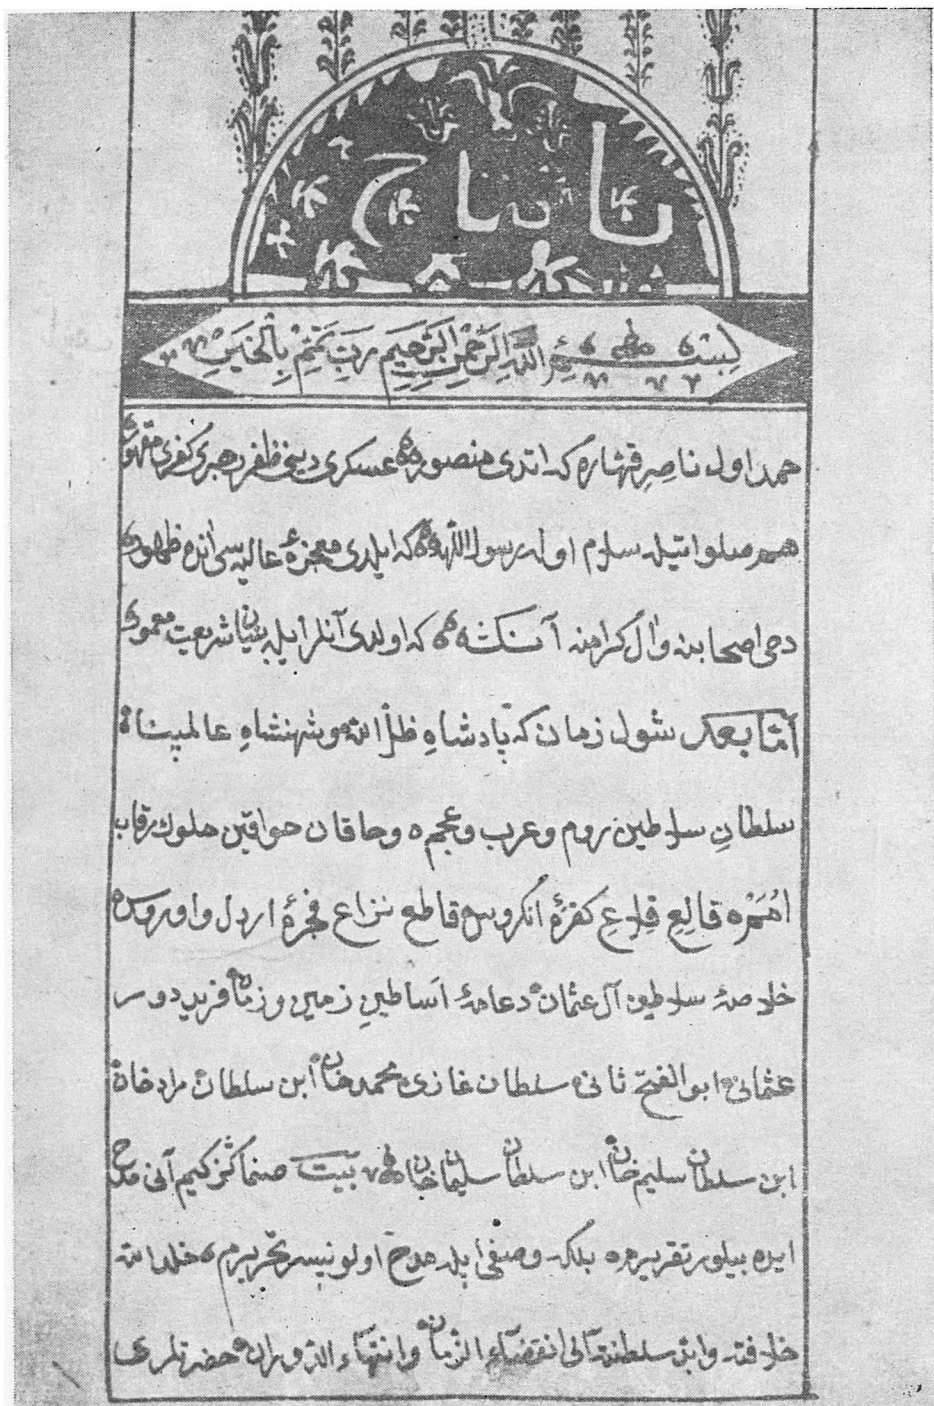 بسم الله الرحمن الرحيم رب تمم بالخير
حمد اول ناصر قهاره كه اتدى منصور عسكرى دينى ظفر رهبرى كفرى مقهور
هم صلواتيله سلام اوله رسول اللهه كه ايلدى معجزهٔ عاليه سى انده ظهور
دخى اصحابنه وآل كرامنه آنك كه اولدى آنلر ايله بنيان شريعت معمور
اما بعد شول زمان كه پادشاه ظل الله وشهنشاه عالمپناه
سلطان سلاطين روم وعرب وعجم وخاقان خواقين ملوك رقاب
امم قالع قلاع كفرهٔ انكروس قاطع نزاع فجرهٔ اردل واوروس
خلاصهٔ سلاطين آل عثمان دعامهٔ اساطين زمين وزمان فريد دور
عثمانى ابو الفتح ثانى سلطان غازى محمد خان ابن سلطان مراد خان
ابن سلطان سليم خان ابن سلطان سليمان خان بيت صنماكز كيم آنى مدح
ايده بيلور تقريرم بلكه وصفى ايله مدح اولونيسر تحريرم خلد الله
خلافته وابد سلطنته الى انقضاء الزمان وانتهاء الدوران حضرتلرى